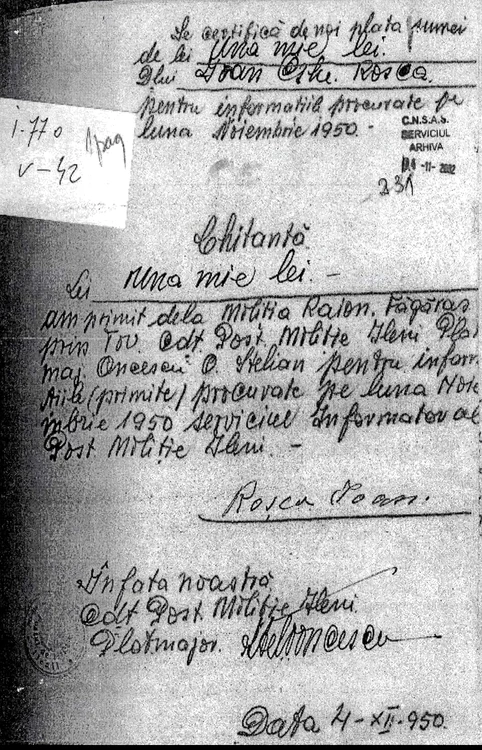 Se certifică de noi plata sumei
de lei Una mie lei.
Dlui Ioan Ghe. Rosca.
pentru informatiile procurate pe
luna Noiembrie 1950. -
C.N.S.A.S.
SERVICIUL
ARHIVA
-11- 2002
231
i-770
v-42
1 pag
Chitantă
Lei Una mie lei. -
am primit dela Militia Raion. Făgăras
prin Tov. Cdt Post. Militie Ileni Plat
maj. Oncescu O. Stelian pentru infor
Aiile (primite) procurate pe luna Noie
mbrie 1950 serviciul Informator al
Post Militie Ileni. -
Roșca Ioan.
În fata noastră
Cdt Post. Militie Ileni
Platmajor. StelOncescu
Data 4-XII-950.